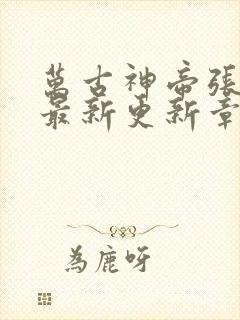 萬古神帝張
最新更新章
為鹿呀